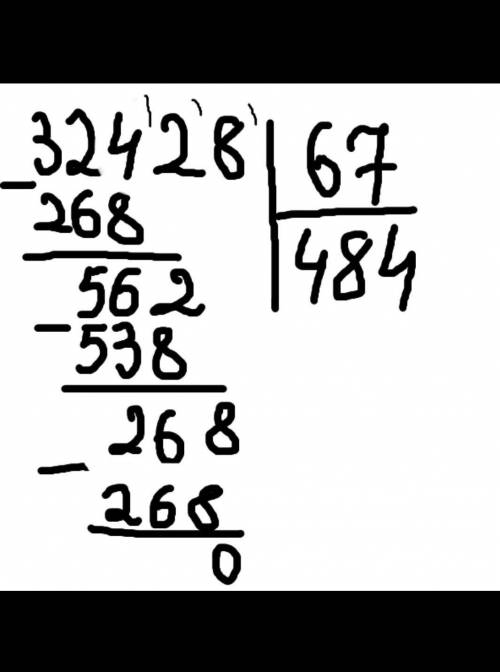 32428 67
- 268 484
562
- 538
268
- 268
0